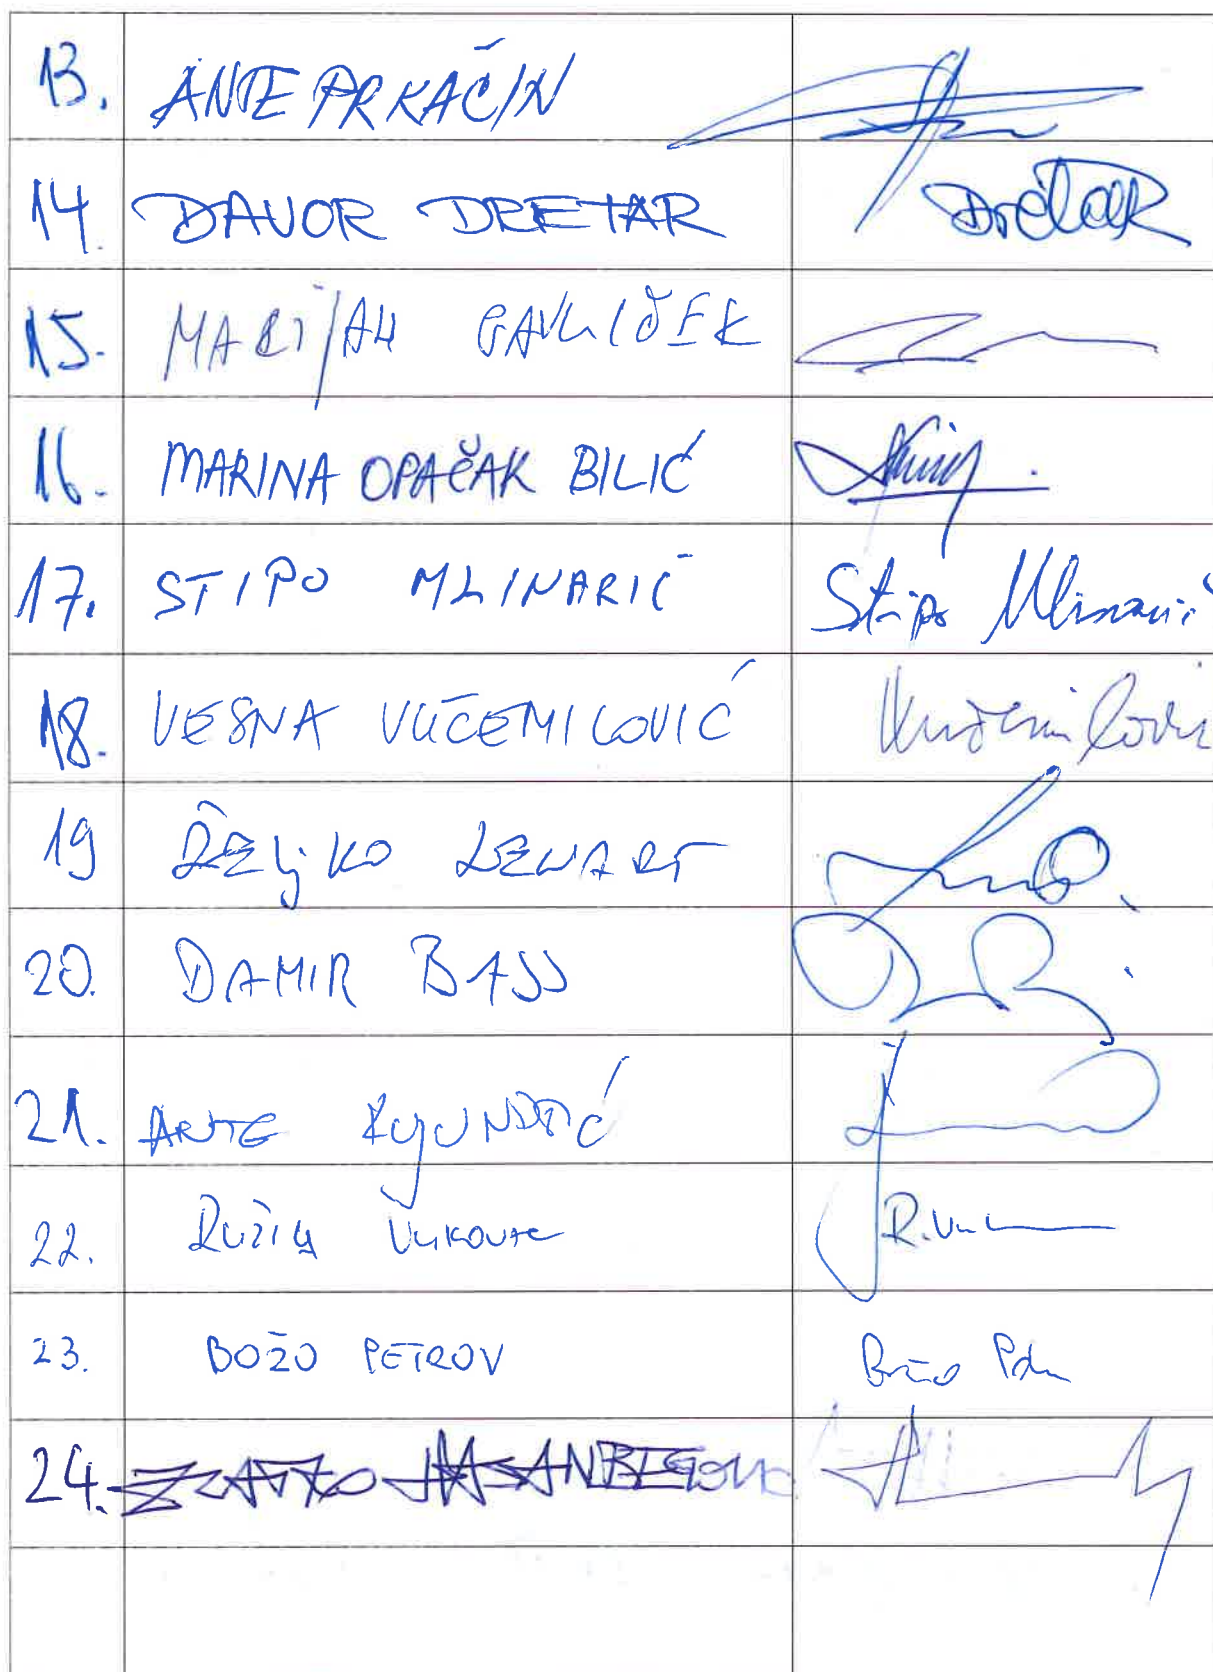 13. ANTE PRKAČIN
14. DAVOR DRETAR Dretar
15. MARIJAN PAVLIČEK
16. MARINA OPAČAK BILIĆ
17. STIPO MLINARIĆ Stipo Mlinarić
18. VESNA VUČEMILOVIĆ Vučemilović
19 ŽELJKO LENART
20. DAMIR BAJS
21. ANTE KUJUNDŽIĆ
22. RUŽICA VUKOVAC R. Vu
23. BOŽO PETROV Božo Petrov
24. ZLATKO HASANBEGOVIĆ